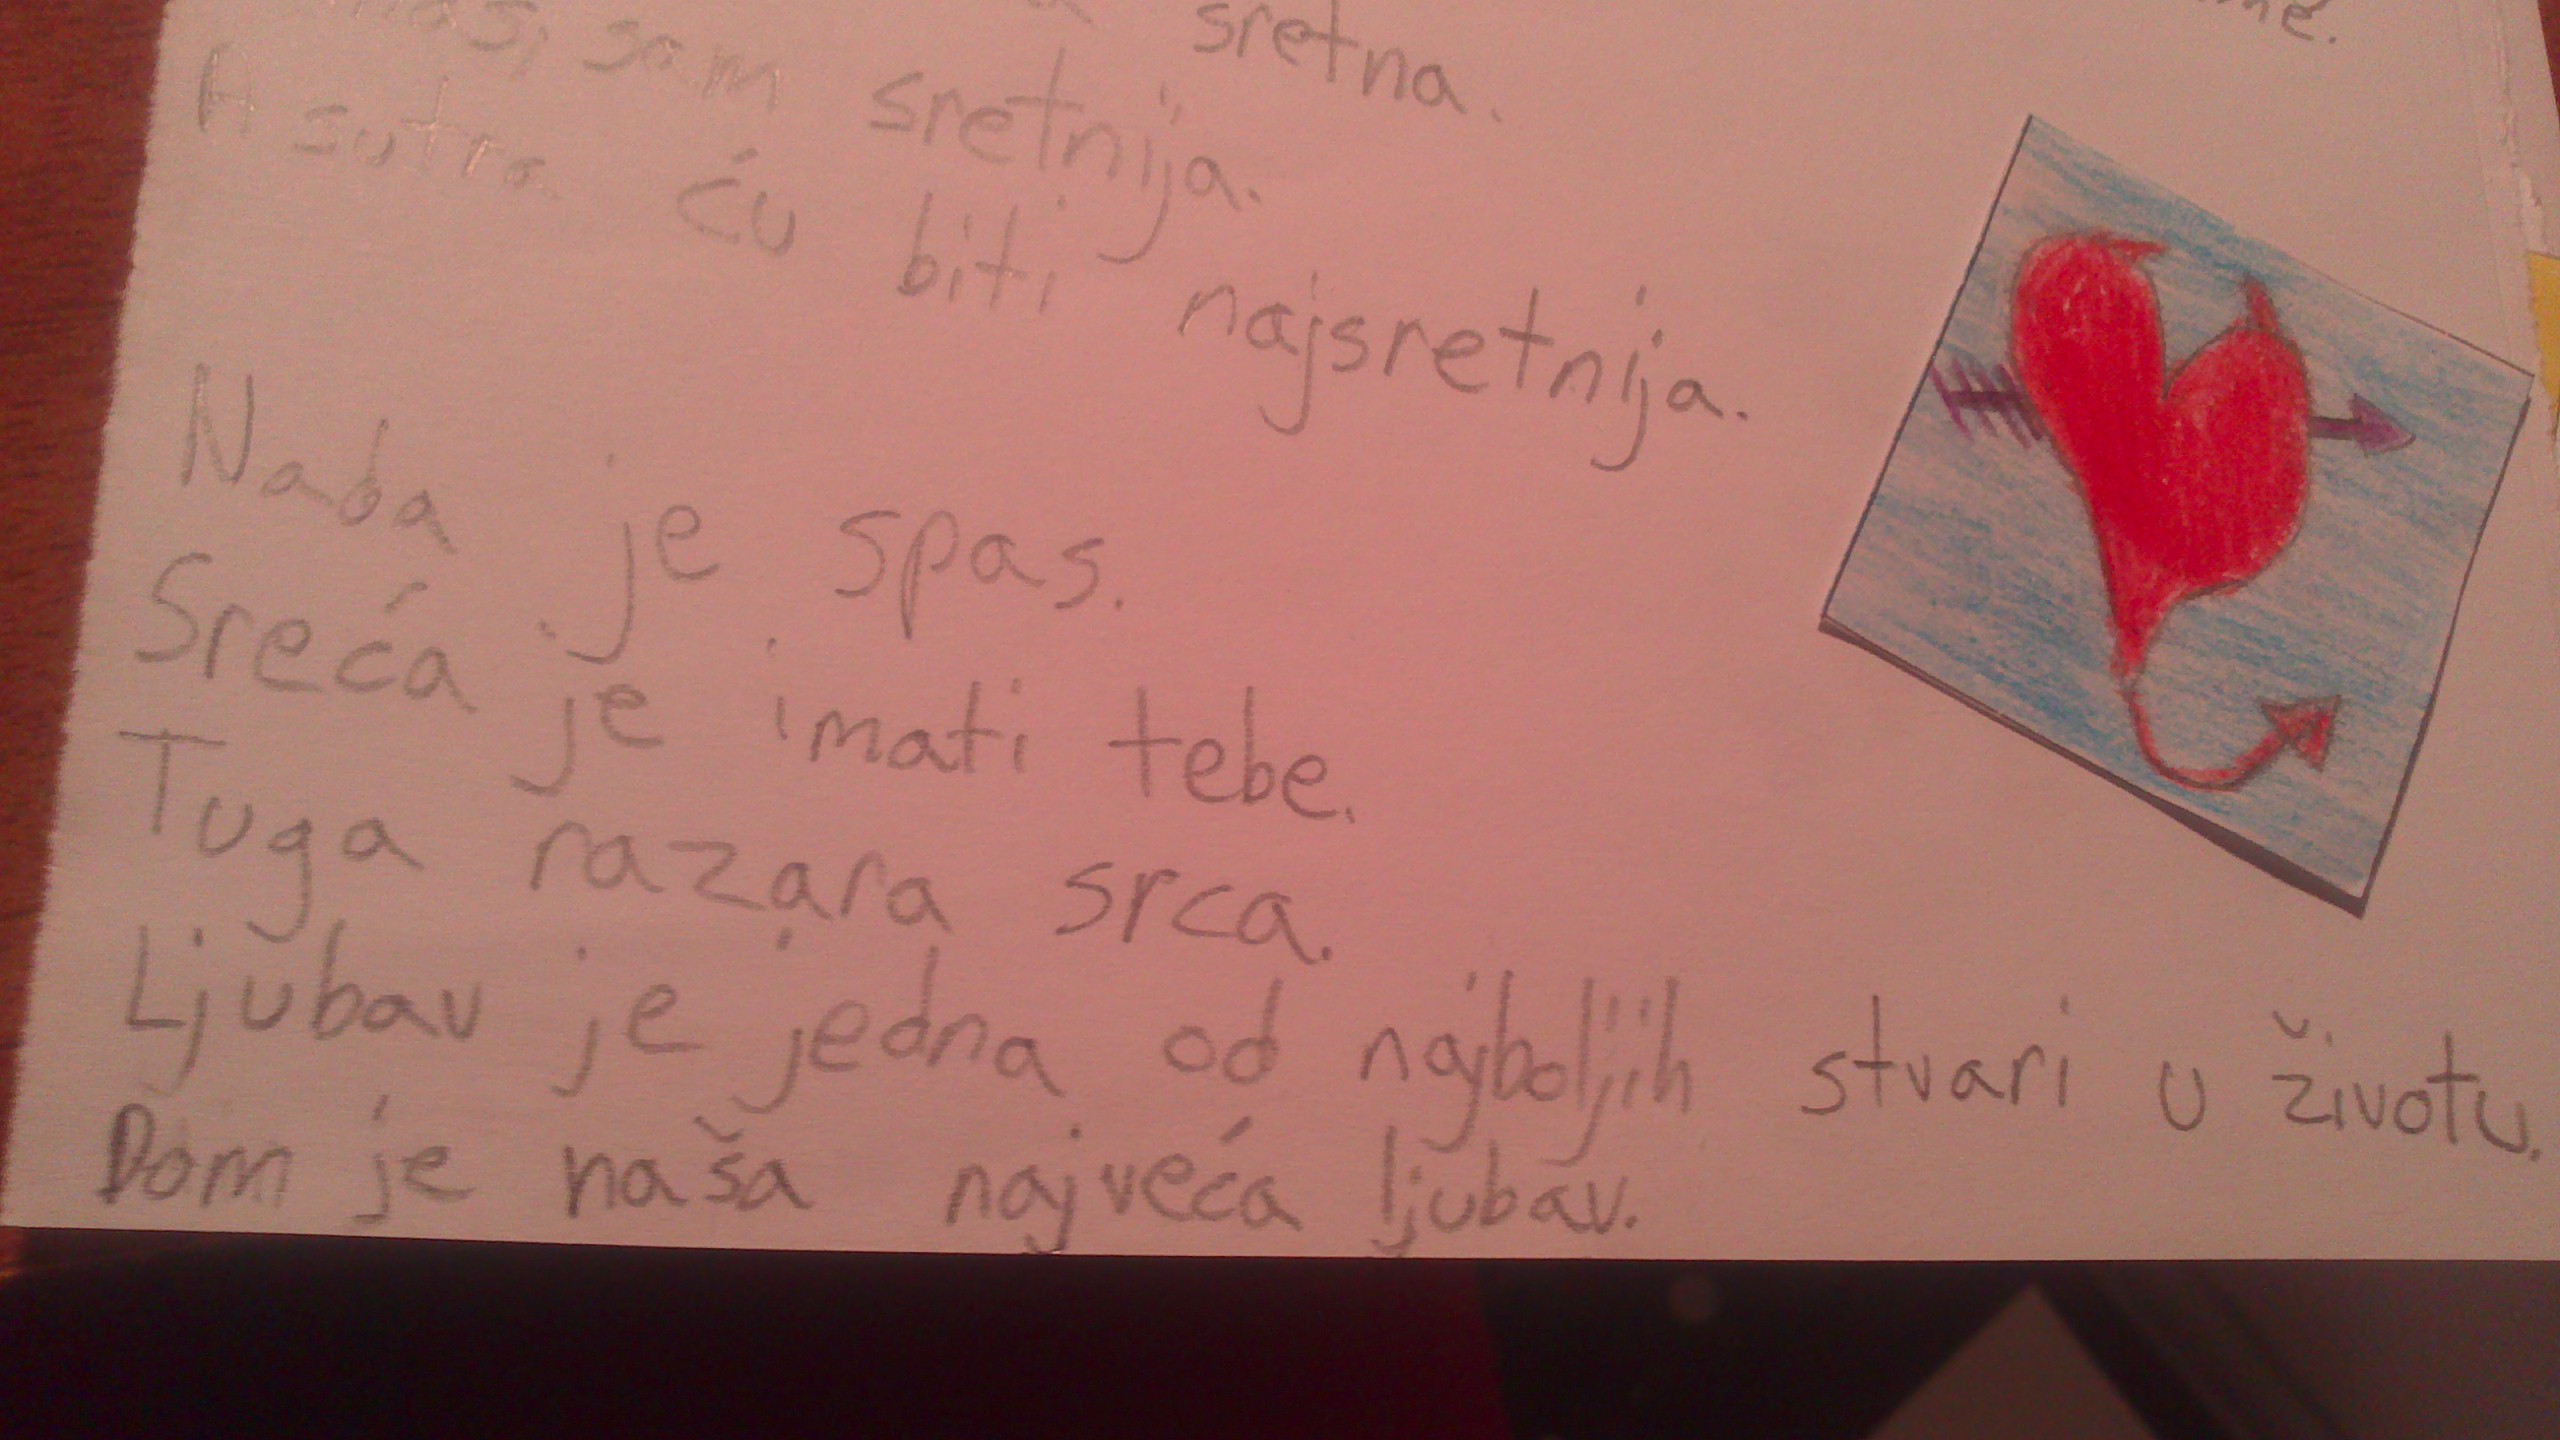 sretna.
sam sretnija.
A sutra ću biti najsretnija.
Nada je spas.
Sreća je imati tebe.
Tuga razara srca.
Ljubav je jedna od najboljih stvari u životu.
Dom je naša najveća ljubav.